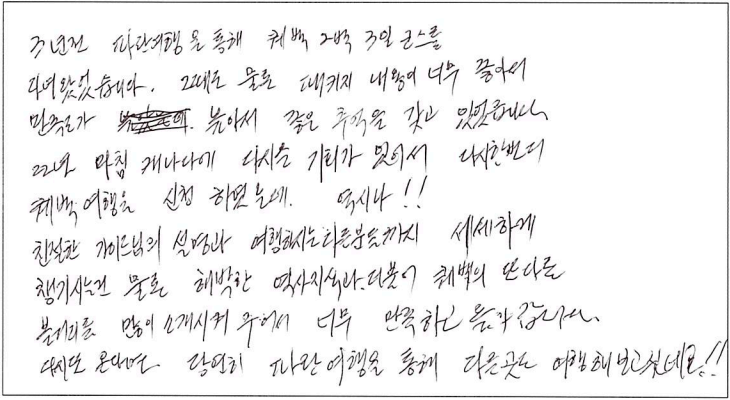 3년전 파란여행을 통해 퀘백 2박 3일 코스를
다녀왔었습니다. 그때도 물론 패키지 내용이 너무 좋아서
만족도가 높아서 좋은 추억을 갖고 있었습니다.
22년 마침 캐나다에 다시올 기회가 있어서 다시한번더
퀘백 여행을 신청 하였는데. 역시나!!
친절한 가이드님의 설명과 여행하시는 다른분들까지 세세하게
챙기시는건 물론 해박한 역사지식과.더불어 퀘백의 또다른
볼거리를 많이 소개시켜 주어서 너무 만족하고 돌아 갑니다.
다시또 온다면. 당연히 파란여행을 통해 다른곳도 여행해보고싶네요!!